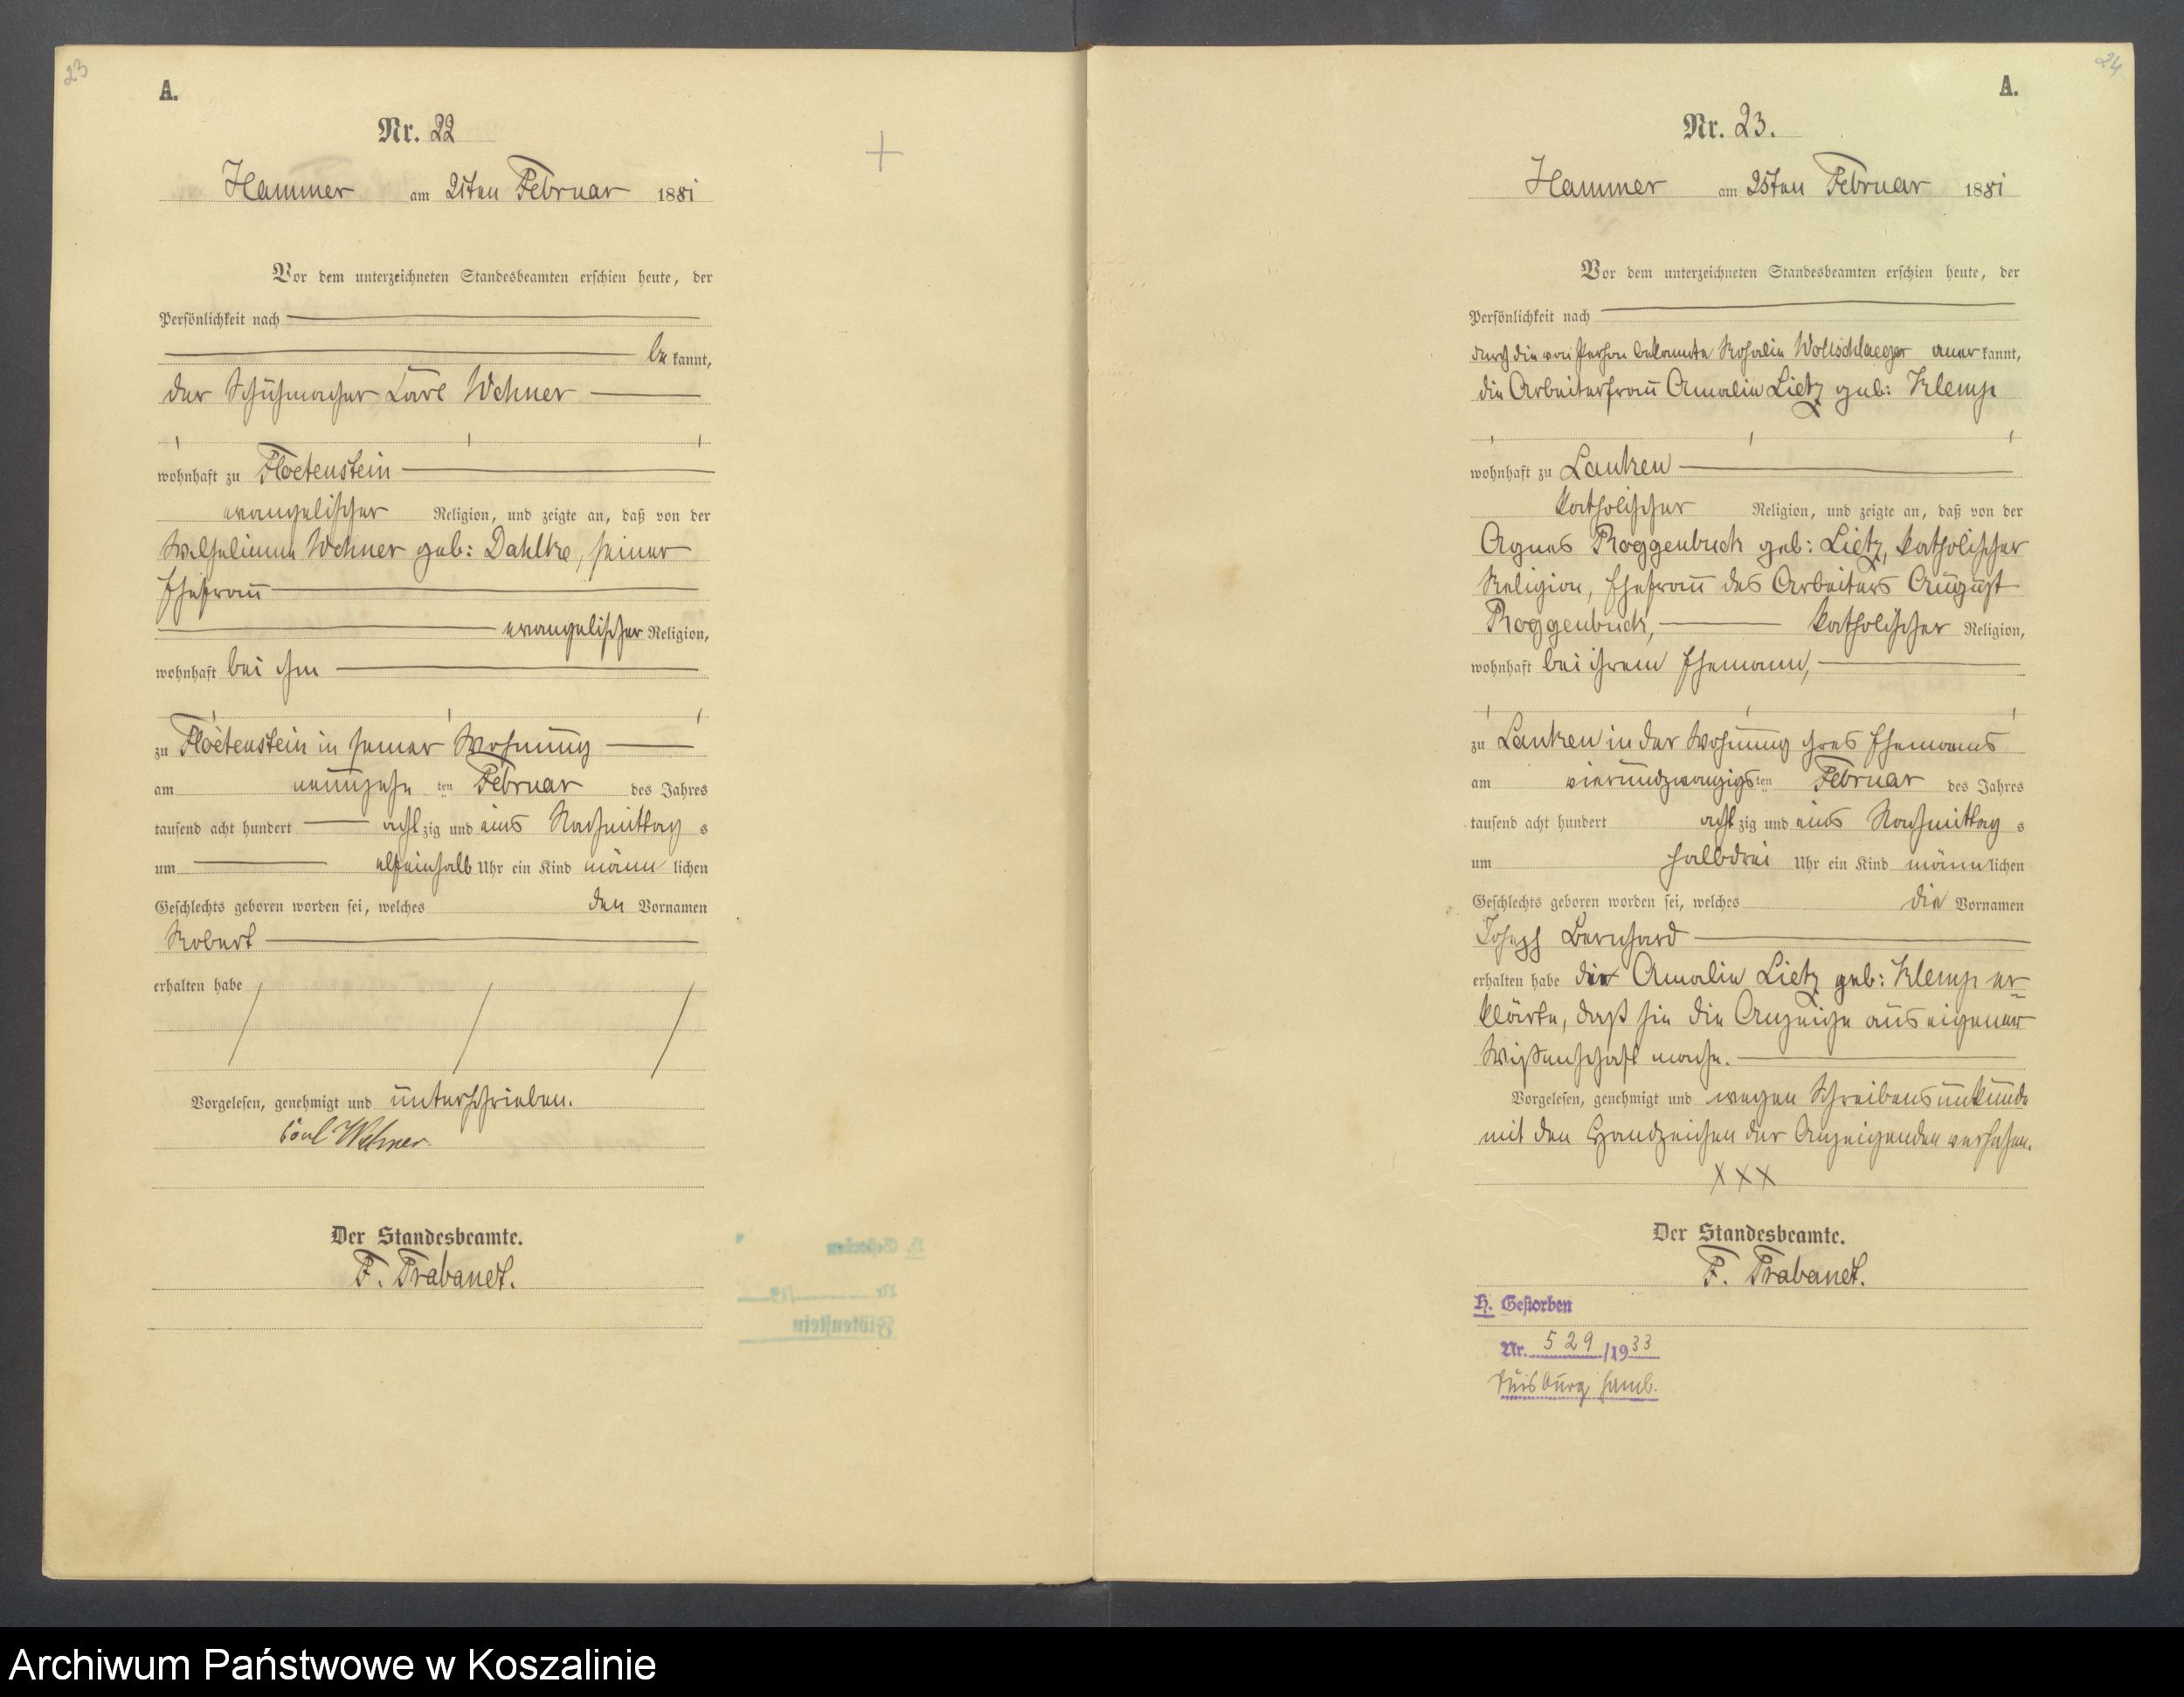 23
A.
Nr. 22
Hammer am 21ten Februar 1881
Vor dem unterzeichneten Standesbeamten erschien heute, der
Persönlichkeit nach
be kannt,
der Schuhmacher Carl Wehner
wohnhaft zu Floetenstein
evangelischer Religion, und zeigte an, daß von der
Wilhelimine Wehner geb: Dahlke, seiner
Ehefrau
evangelischer Religion,
wohnhaft bei ihm
zu Floetenstein in seiner Wohnung
am neunzehn ten Februar des Jahres
tausend acht hundert acht zig und eins Nachmittag s
um elfeinhalb Uhr ein Kind männ lichen
Geschlechts geboren worden sei, welches den Vornamen
Robert
erhalten habe
Vorgelesen, genehmigt und unterschrieben.
Carl Wehner
Der Standesbeamte.
F. Trabanet.
24
A.
Nr. 23.
Hammer am 25ten Februar 1881
Vor dem unterzeichneten Standesbeamten erschien heute, der
Persönlichkeit nach
durch die von Person bekannte Rosalie Wollschlaeger aner kannt,
die Arbeiterfrau Amalie Lietz geb: Klemp
wohnhaft zu Lanken
katholischer Religion, und zeigte an, daß von der
Agnes Roggenbuck geb: Lietz, katholischer
Religion, Ehefrau des Arbeiters August
Roggenbuck, katholischer Religion,
wohnhaft bei ihrem Ehemann,
zu Lanken in der Wohnung ihres Ehemanns
am vierundzwanzigs ten Februar des Jahres
tausend acht hundert acht zig und eins Nachmittag s
um halbdrei Uhr ein Kind männ lichen
Geschlechts geboren worden sei, welches die Vornamen
Joseph Bernhard
erhalten habe die Amalie Lietz geb: Klemp er-
klärte, daß sie die Anzeige aus eigener
Wissenschaft mache.
Vorgelesen, genehmigt und wegen Schreibensunkunde
mit den Handzeichen der Anzeigenden versehen.
XXX
Der Standesbeamte.
F. Trabanet.
H. Gestorben
Nr. 529/1933
Duisburg Hamb.
Archiwum Państwowe w Koszalinie